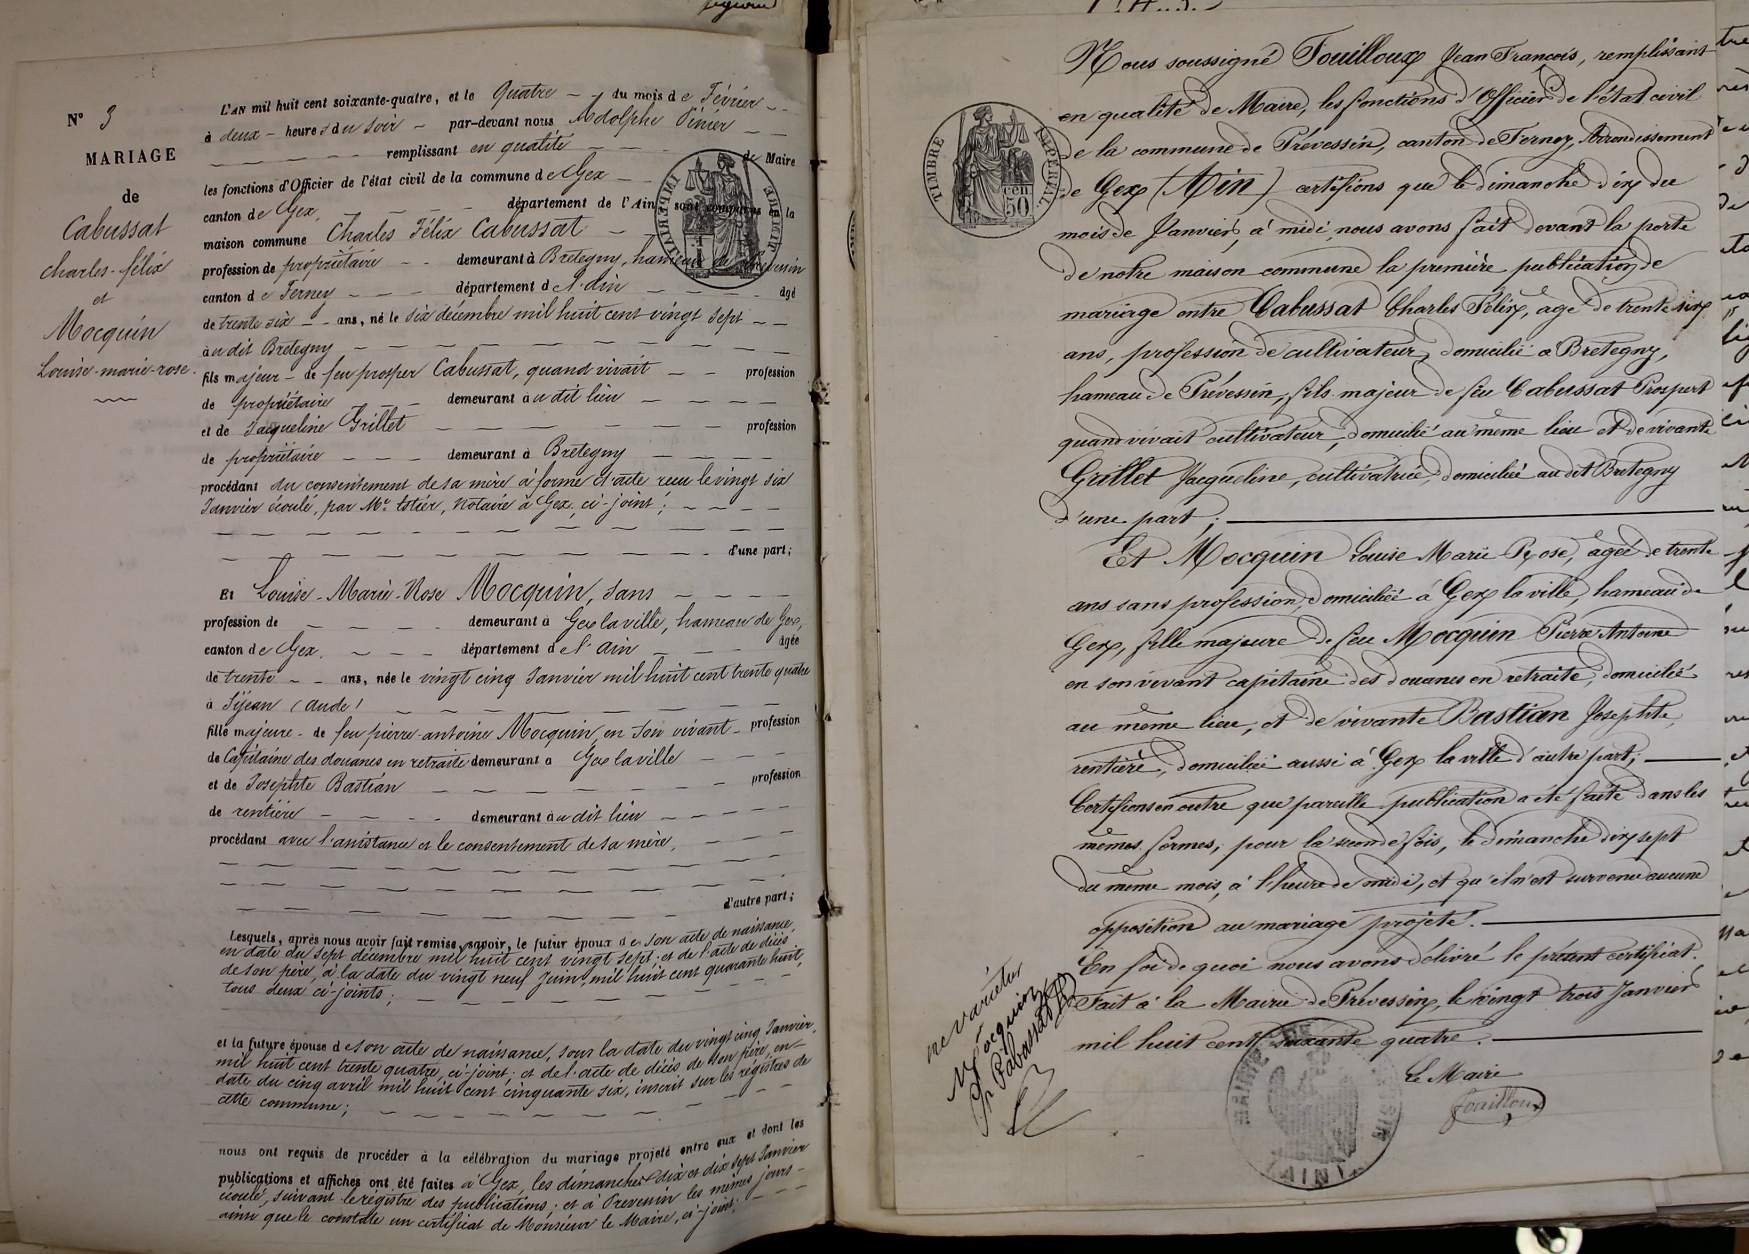 N° 3
MARIAGE
de
Cabussat
charles-félix
et
Mocquin
Louise-marie-rose.
L'AN mil huit cent soixante-quatre, et le Quatre du mois de Février
à deux heures du soir par-devant nous Adolphe Pinier
remplissant en qualité de Maire
les fonctions d'Officier de l'état civil de la commune de Gex
canton de Gex, département de l'Ain sont comparus en la
maison commune Charles Félix Cabussat
profession de propriétaire demeurant à Bretegny, hameau de Prevessin
canton de Ferney département de l'Ain âgé
de trente six ans, né le six décembre mil huit cent vingt sept
audit Bretegny
fils majeur de feu prosper Cabussat, quand vivait profession
de propriétaire demeurant audit lieu
et de Jacqueline Grillet profession
de propriétaire demeurant à Bretegny
procédant du consentement de sa mère à forme d'acte reçu le vingt six
Janvier écoulé, par Me notaire à Gex, ci-joint;
d'une part;
Et Louise-Marie-Rose Mocquin, sans
profession de demeurant à Gex la ville, hameau de Gex,
canton de Gex. département de l'ain âgée
de trente ans, née le vingt cinq Janvier mil huit cent trente quatre
à Sijean (aude)
fille majeure de feu pierre-antoine Mocquin, en son vivant profession
de Capitaine des douanes en retraite demeurant à Gex la ville
et de Josephte Bastian profession
de rentière demeurant audit lieu
procédant avec l'assistance et le consentement de sa mère,
d'autre part;
Lesquels, après nous avoir fait remise, savoir, le futur époux de son acte de naissance,
en date du sept décembre mil huit cent vingt sept; et de l'acte de décès
de son père, à la date du vingt neuf Juin mil huit cent quarante huit,
tous deux ci-joints;
et la future épouse de son acte de naissance, sous la date du vingt cinq Janvier
mil huit cent trente quatre, ci-joint; et de l'acte de décès de son père, en
date du cinq avril mil huit cent cinquante six, inscrit sur les régistres de
cette commune;
nous ont requis de procéder à la célébration du mariage projeté entre eux et dont les
publications et affiches ont été faites à Gex, les dimanches dix et dix sept Janvier
écoulé, suivant le régistre des publications; et à Prevessin les mêmes jours
ainsi que le constate un certificat de Monsieur le Maire, ci-joint;
TIMBRE IMPERIAL
TIMBRE IMPÉRIAL
50 cen
Nous soussigné Fouilloux Jean François, remplissant
en qualité de Maire, les fonctions d'Officier de l'état civil
de la commune de Prévessin, canton de Ferney, Arrondissement
de Gex (Ain) certifions que le dimanche dix du
mois de Janvier, à midi, nous avons fait devant la porte
de notre maison commune la première publication de
mariage entre Cabussat Charles Félix, agé de trente six
ans, profession de cultivateur, domicilié à Bretegny,
hameau de Prévessin, fils majeur de feu Cabussat Prospert
quand vivait cultivateur, domicilié au même lieu et de vivante
Grillet Jacqueline, cultivatrice, domiciliée audit Bretegny
d'une part;
Et Mocquin Louise Marie Rose, agée de trente
ans sans profession, domiciliée à Gex la ville, hameau de
Gex, fille majeure de feu Mocquin Pierre Antoine
en son vivant capitaine des douanes en retraite, domicilié
au même lieu, et de vivante Bastian Josephte,
rentière, domiciliée aussi à Gex la ville d'autre part;
Certifions en outre que pareille publication a été faite dans les
mêmes formes, pour la seconde fois, le dimanche dix sept
du même mois, à l'heure de midi, et qu'il n'est survenu aucune
opposition au mariage projeté.
En foi de quoi nous avons délivré le présent certificat.
Fait à la Mairie de Prévessin, le vingt trois Janvier
mil huit cent soixante quatre.
Le Maire
Fouilloux
ne varietur
Mocquin
Cabussat
MAIRIE DE